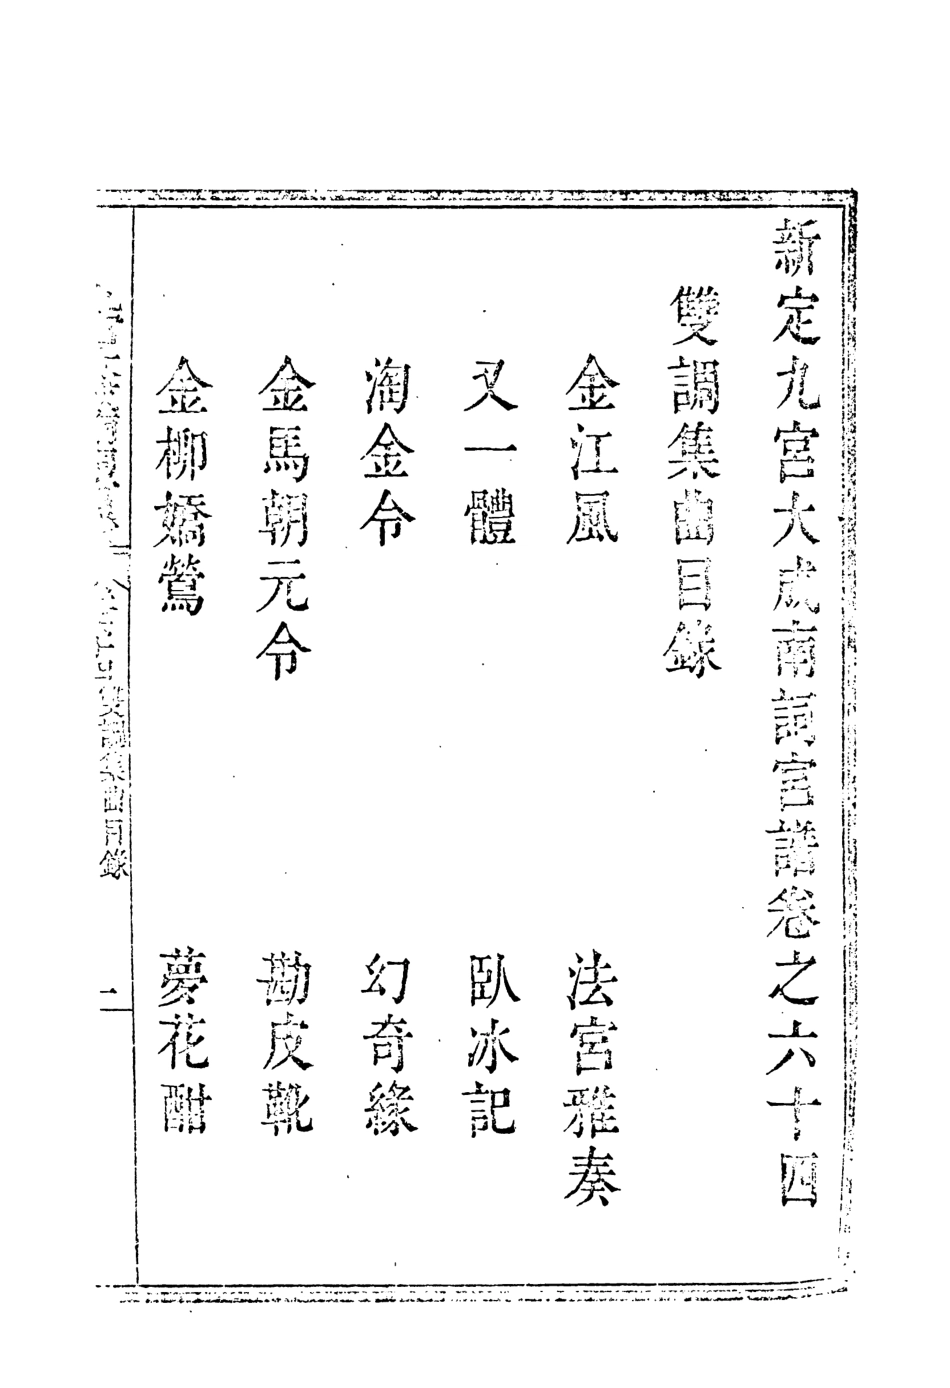 新定九宮大成南詞宮譜卷之六十四
雙調集曲目錄
金江風　法宮雅奏
又一體　臥冰記
淘金令　幻奇緣
金馬朝元令　勘皮靴
金柳嬌鶯　夢花酣
雙調集曲目錄　二